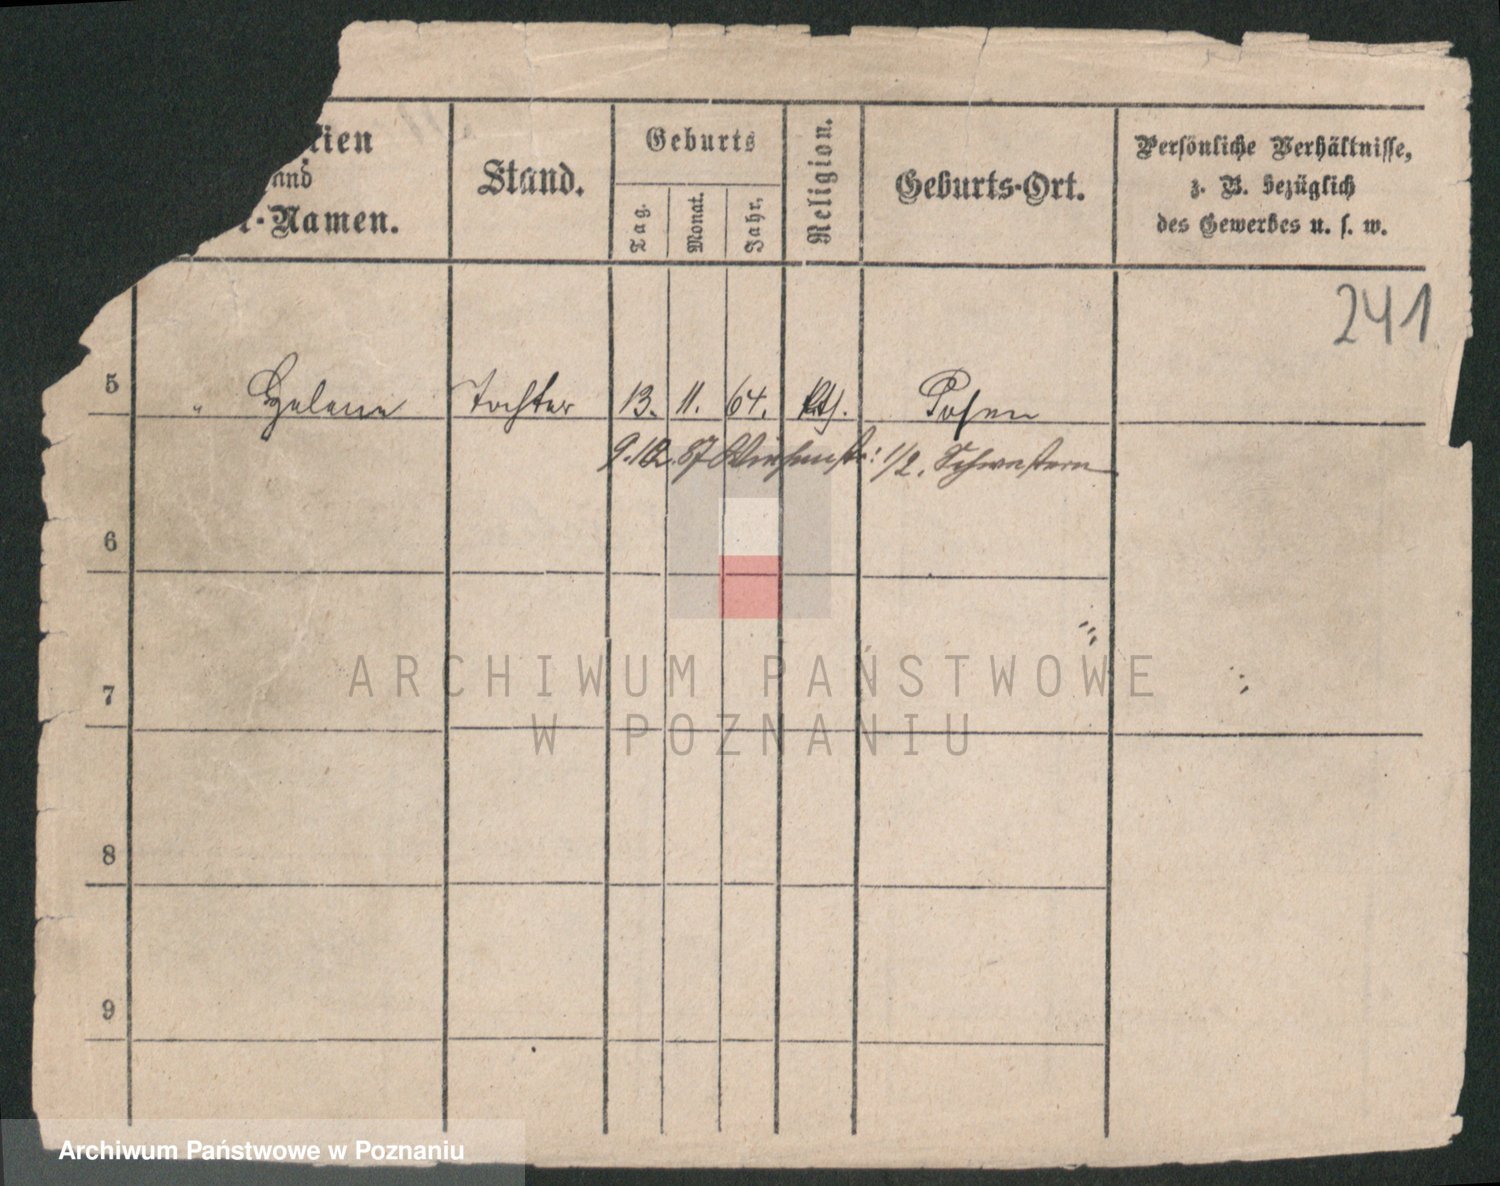 ien
und
r-Namen.
Stand.
Geburts
Tag.
Monat.
Jahr.
Religion.
Geburts-Ort.
Persönliche Verhältnisse,
z. B. bezüglich
des Gewerbes u. s. w.
241
5 " Helene Tochter 13. 11. 64. Kth. Posen
9.10.87 1/2. Schwestern
6
7
8
9
ARCHIWUM PAŃSTWOWE
W POZNANIU
Archiwum Państwowe w Poznaniu